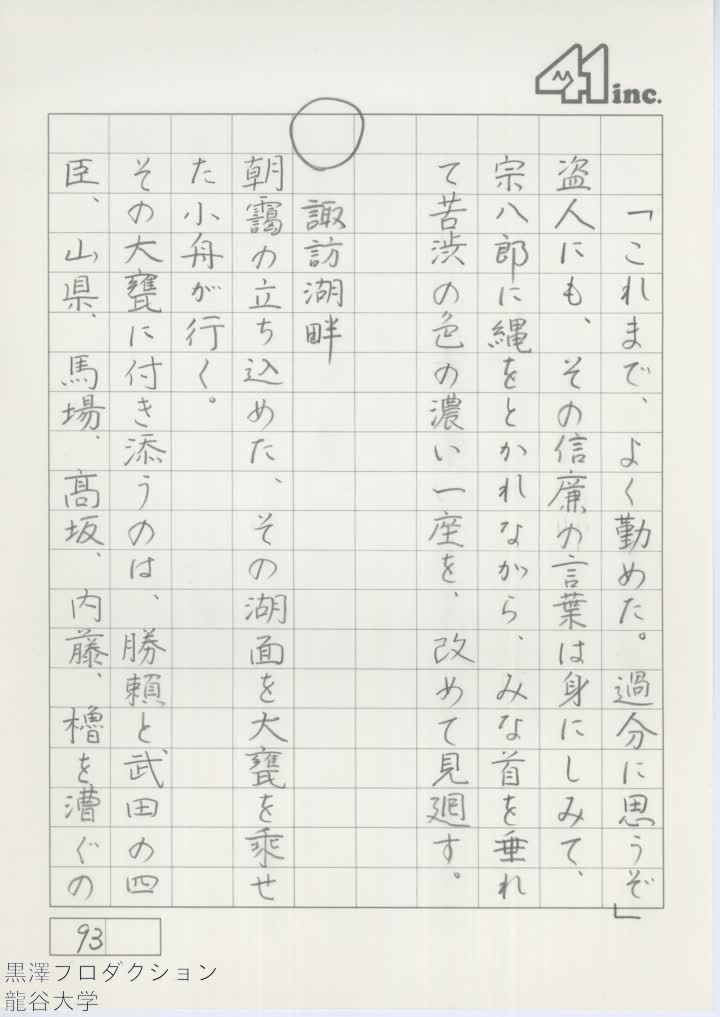 41 inc.
「これまで、よく勤めた。過分に思うぞ」
盗人にも、その信廉の言葉は身にしみて、
宗八郎に縄をとかれながら、みな首を垂れ
て苦渋の色の濃い一座を、改めて見廻す。
○ 諏訪湖畔
朝靄の立ち込めた、その湖面を大甕を乗せ
た小舟が行く。
その大甕に付き添うのは、勝頼と武田の四
臣、山県、馬場、高坂、内藤、櫓を漕ぐの
93
黒澤プロダクション
龍谷大学